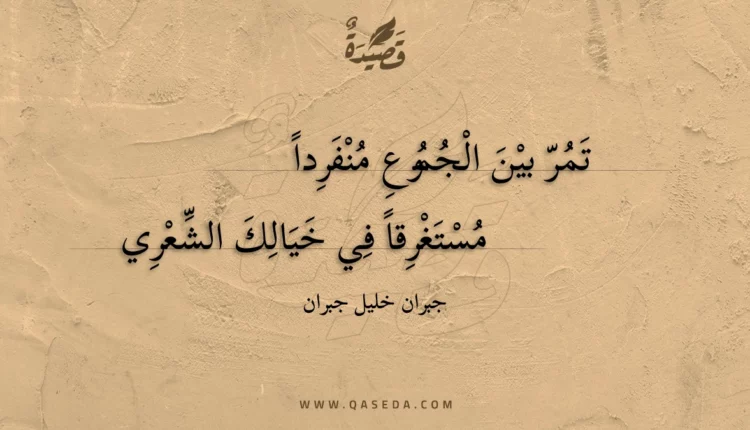 قَصِيدَةٌ
تَمُرّ بيْنَ الْجُمُوعِ مُنْفَرِداً
مُسْتَغْرِقاً فِي خَيَالِكَ الشِّعْرِي
جبران خليل جبران
WWW.QASEDA.COM